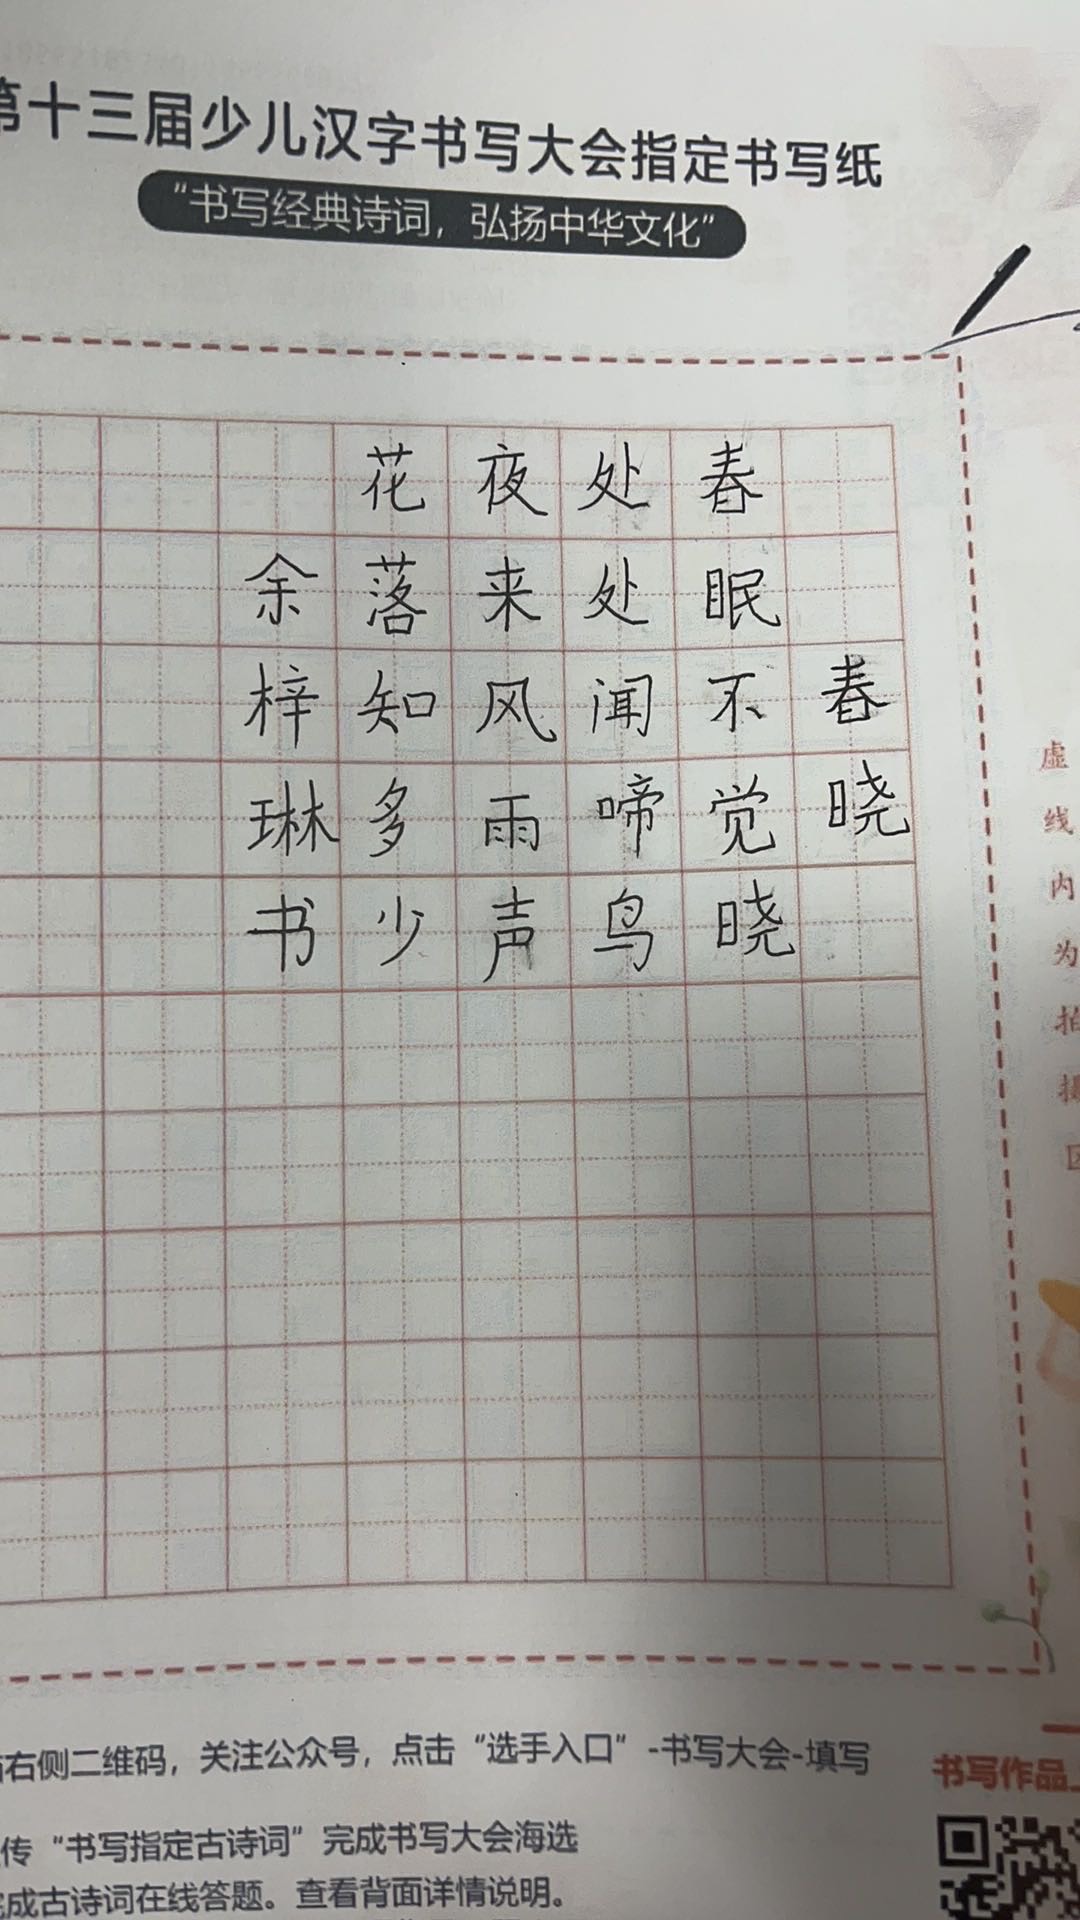 第十三届少儿汉字书写大会指定书写纸
“书写经典诗词，弘扬中华文化”
春晓
春眠不觉晓
处处闻啼鸟
夜来风雨声
花落知多少
余梓琳书
虚线内为拍摄区
右侧二维码，关注公众号，点击“选手入口”-书写大会-填写
传“书写指定古诗词”完成书写大会海选
完成古诗词在线答题。查看背面详情说明。
书写作品